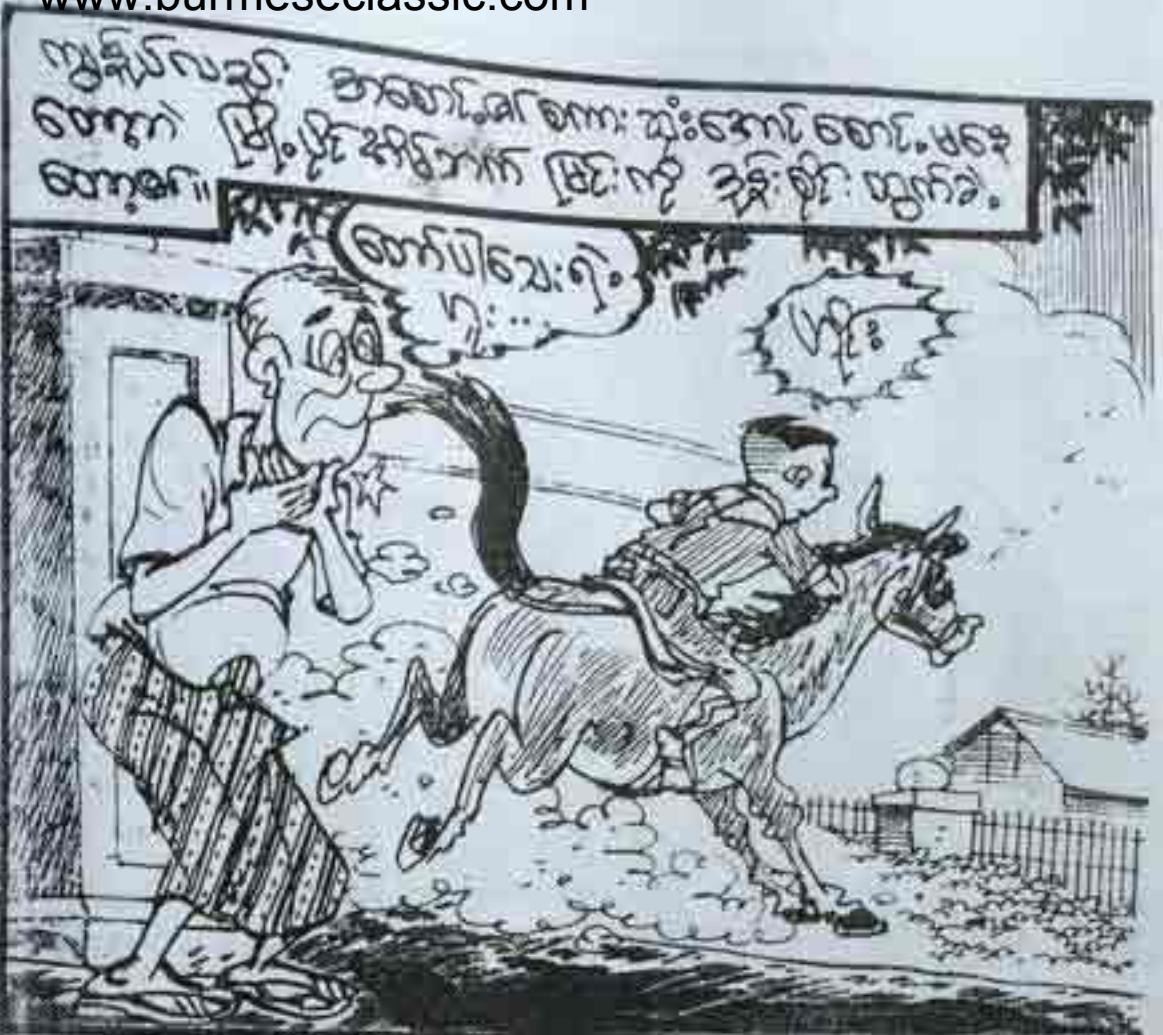 www.burmeseclassic.com
ကျွန်ုပ်လည်း အစောင့်၏ စကား ဆုံးအောင် စောင့်မနေ
တော့ဘဲ မြို့ပိုင်အိမ်ဘက် မြင်းကို ဒုန်းစိုင်း ထွက်ခဲ့
တော့၏။
တော်ပါသေးရဲ့
ဟူး...
ဟိုး